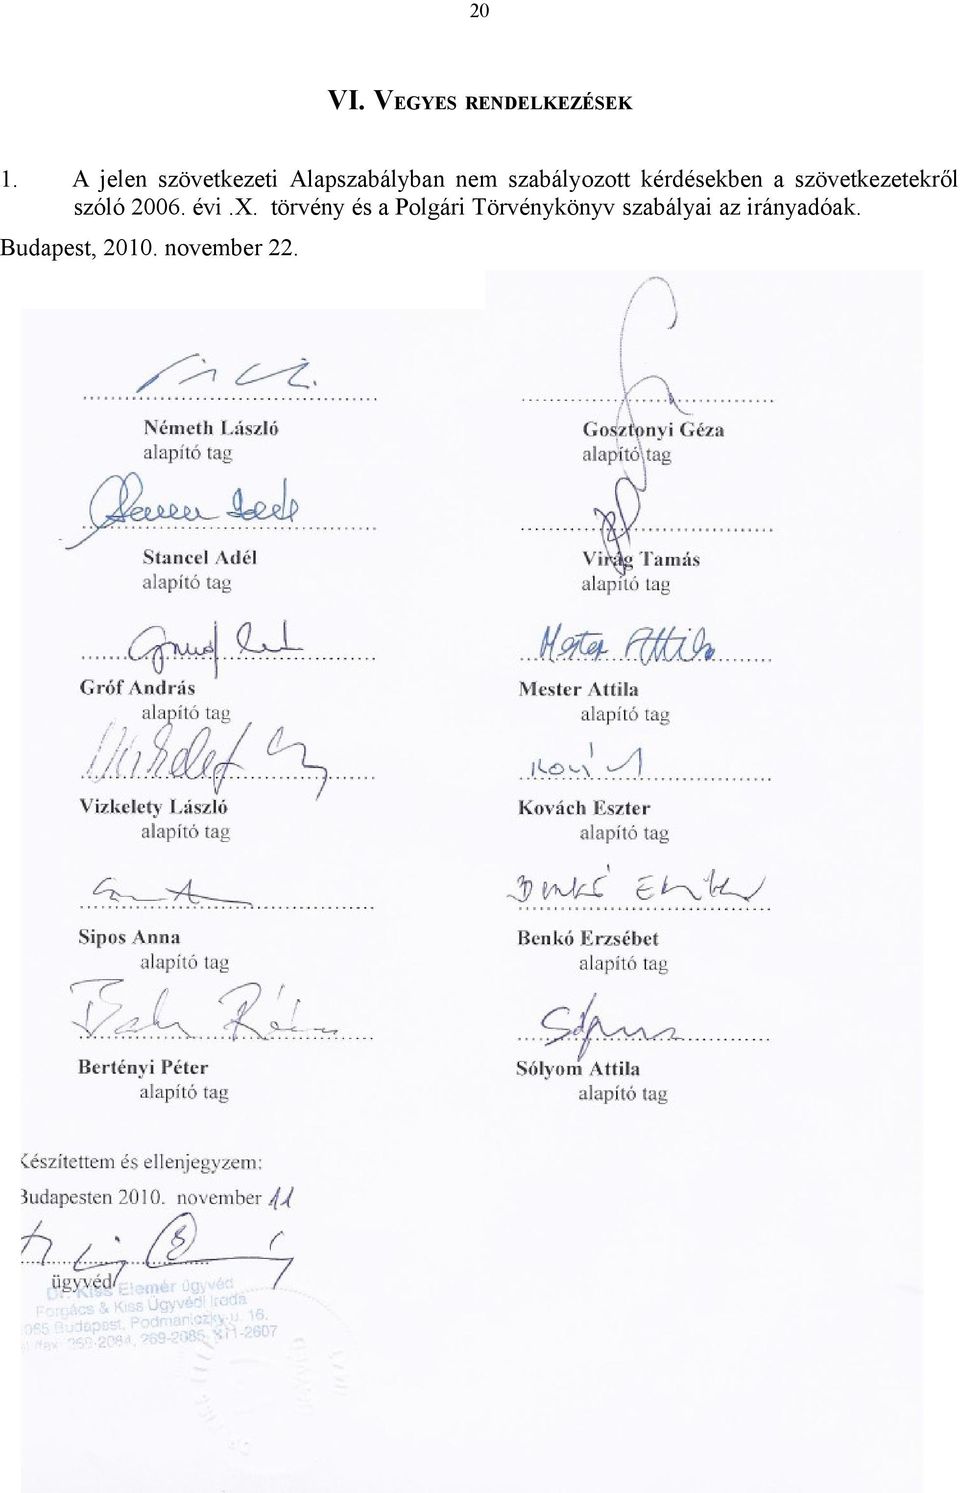 20
VI. VEGYES RENDELKEZÉSEK
1. A jelen szövetkezeti Alapszabályban nem szabályozott kérdésekben a szövetkezetekről
szóló 2006. évi .X. törvény és a Polgári Törvénykönyv szabályai az irányadóak.
Budapest, 2010. november 22.
Németh László
alapító tag
Gosztonyi Géza
alapító tag
Stancel Adél
alapító tag
Virág Tamás
alapító tag
Mester Attila
Gróf András
alapító tag
Mester Attila
alapító tag
Vizkelety László
alapító tag
Kovách Eszter
alapító tag
Sipos Anna
alapító tag
Benkó Erzsébet
alapító tag
Bertényi Péter
alapító tag
Sólyom Attila
alapító tag
Készítettem és ellenjegyzem:
Budapesten 2010. november 11
ügyvéd
Dr. Kiss Elemér ügyvéd
Forgács & Kiss Ügyvédi Iroda
Budapest, Podmaniczky u. 16.
269-2084, 269-2085, 311-2607